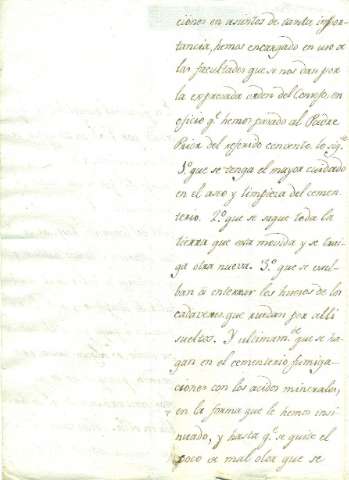 ciones en asuntos de tanta impor-
tancia, hemos encargado en uso de
las facultades que se nos dan por
la expresada orden del Consejo, en
oficio q.e hemos pasado al Padre
Prior del referido convento lo sig.te
1.º que se tenga el mayor cuidado
en el aseo y limpieza del cemen-
terio. 2.º que se saque toda la
tierra que está movida y se trai-
ga otra nueva. 3.º que se vuel-
ban á enterrar los huesos de los
cadaveres que ruedan por alli
sueltos. Y ultimam.te que se ha-
gan en el cementerio fumiga-
ciones con los acidos minerales,
en la forma que le hemos insi-
nuado, y hasta q.e se quite el
poco de mal olor que se